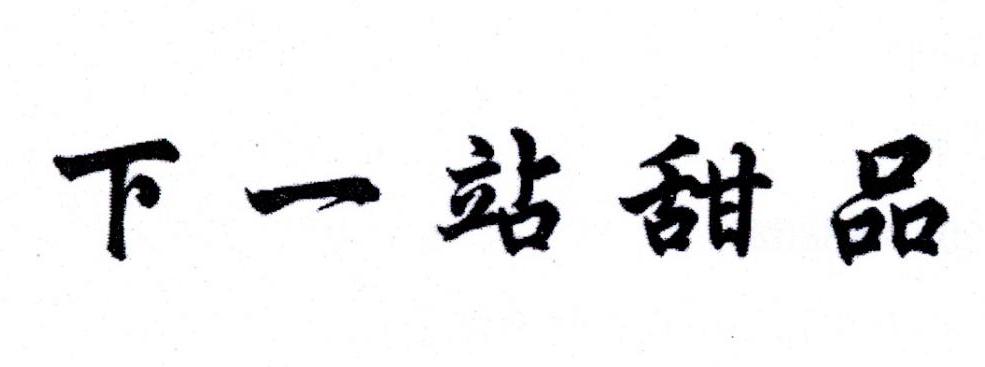 下一站甜品